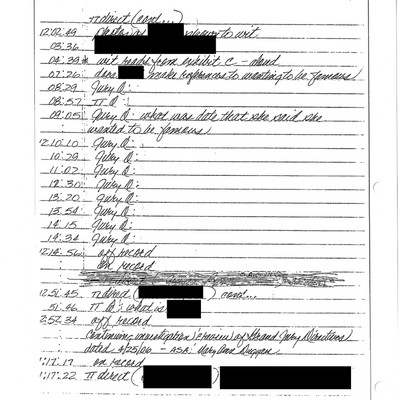 π direct (cont...)
12:02:49 photos as known to wit
03:36
04:39 * wit reads from exhibit C - aloud
07:26 does make references to wanting to be famous
08:29 Jury Q:
08:57 π Q:
09:05 Jury Q: what was date that she said she
wanted to be famous
12:10:10 Jury Q:
10:29 Jury Q:
11:02 Jury Q:
12:30 Jury Q:
13:20 Jury Q:
13:54 Jury Q:
14:15 Jury Q:
14:34 Jury Q:
12:14:56 off record
on record
12:51:45 π direct ( ) cont...
51:46 π Q: what is
2:52:34 off record
Continuing investigation of Grand Jury Directives
dated 4/25/06 - ASA: Mary Ann Duggan
1:17:17 on record
1:17:22 π direct (